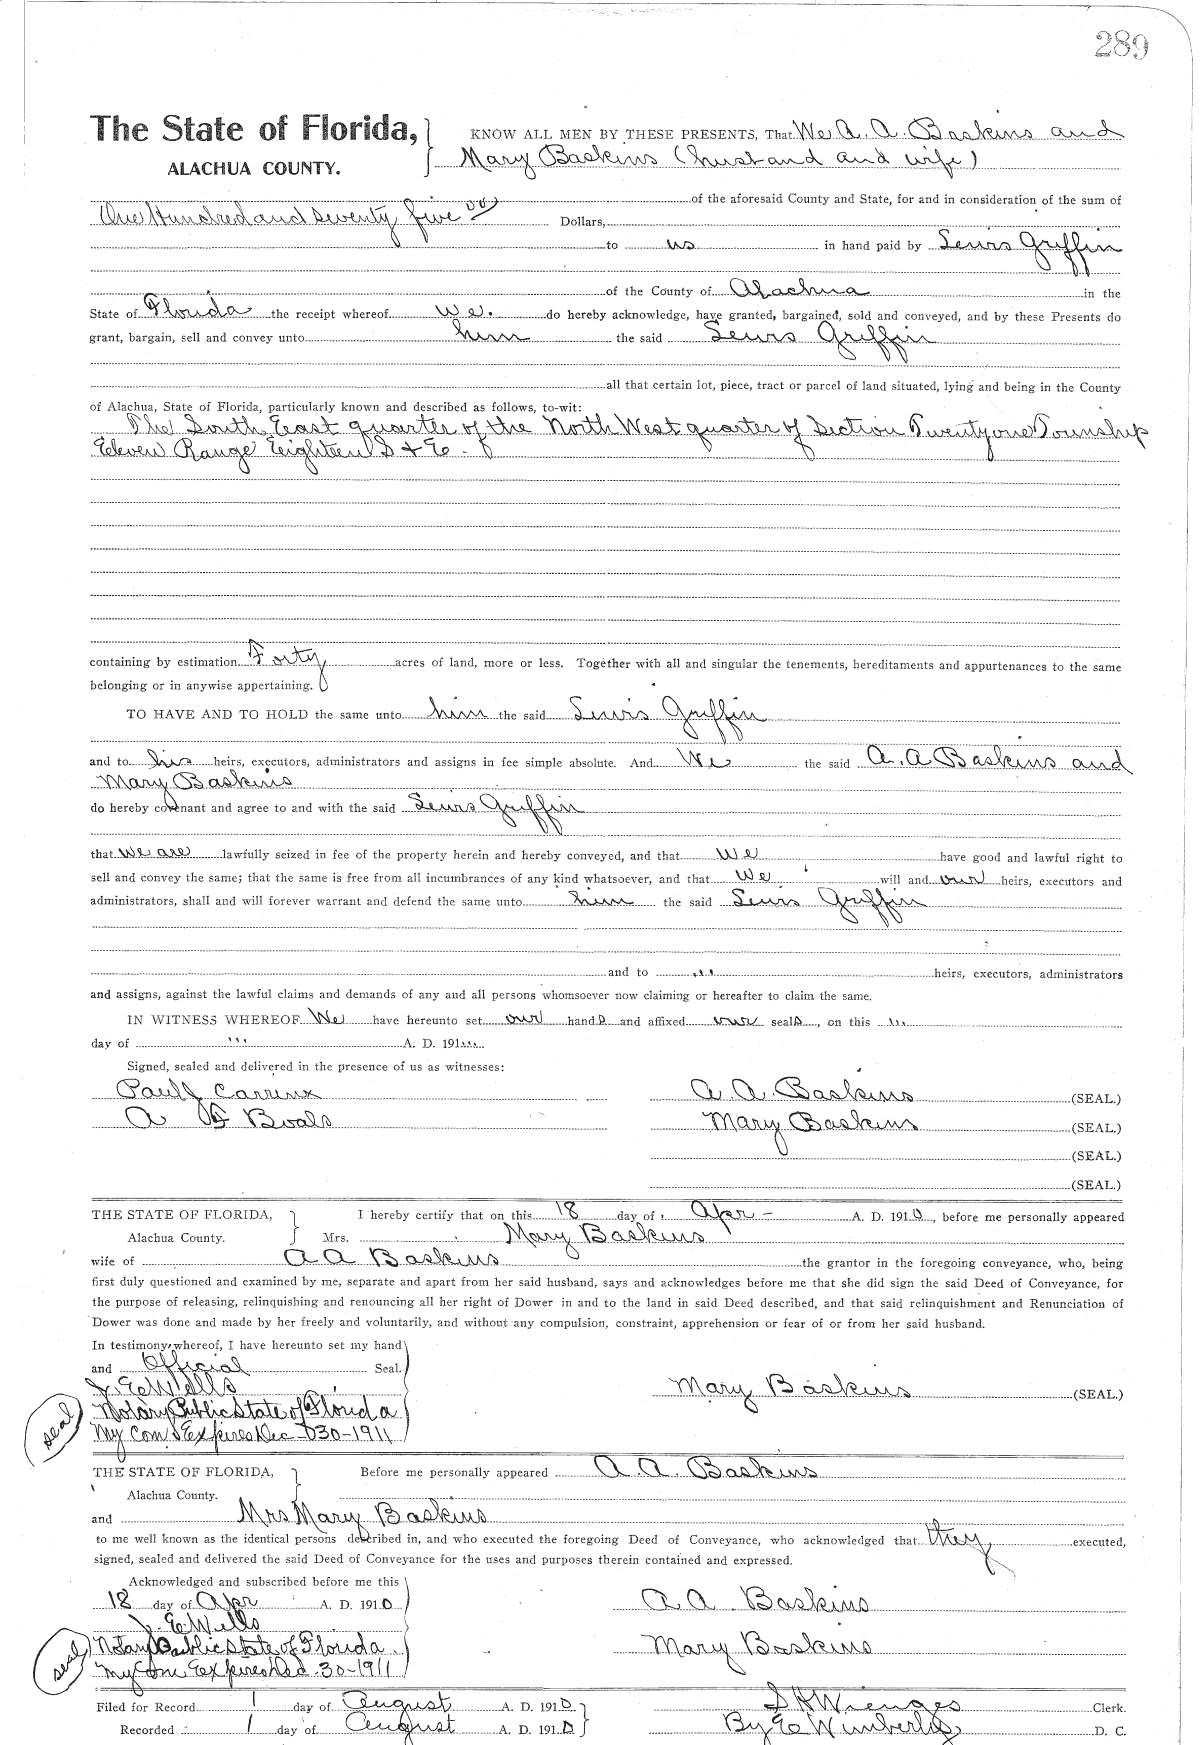 289
The State of Florida, KNOW ALL MEN BY THESE PRESENTS, That We A. A. Baskins and
ALACHUA COUNTY. Mary Baskins (husband and wife)
of the aforesaid County and State, for and in consideration of the sum of
One Hundred and seventy five 00/ Dollars,
to us in hand paid by Lewis Griffin
of the County of Alachua in the
State of Florida the receipt whereof we. do hereby acknowledge, have granted, bargained, sold and conveyed, and by these Presents do
grant, bargain, sell and convey unto him the said Lewis Griffin
all that certain lot, piece, tract or parcel of land situated, lying and being in the County
of Alachua, State of Florida, particularly known and described as follows, to-wit:
The South East quarter of the North West quarter of Section Twenty one Township
Eleven Range Eighteen S & E.
containing by estimation Forty acres of land, more or less. Together with all and singular the tenements, hereditaments and appurtenances to the same
belonging or in anywise appertaining.
TO HAVE AND TO HOLD the same unto him the said Lewis Griffin
and to his heirs, executors, administrators and assigns in fee simple absolute. And We the said A. A Baskins and
Mary Baskins
do hereby covenant and agree to and with the said Lewis Griffin
that we are lawfully seized in fee of the property herein and hereby conveyed, and that we have good and lawful right to
sell and convey the same; that the same is free from all incumbrances of any kind whatsoever, and that we will and our heirs, executors and
administrators, shall and will forever warrant and defend the same unto him the said Lewis Griffin
and to ,,, heirs, executors, administrators
and assigns, against the lawful claims and demands of any and all persons whomsoever now claiming or hereafter to claim the same.
IN WITNESS WHEREOF We have hereunto set our hands and affixed our seals, on this ,,,
day of ''' A. D. 191,,,
Signed, sealed and delivered in the presence of us as witnesses:
Paul A. A. Baskins (SEAL.)
A Mary Baskins (SEAL.)
(SEAL.)
(SEAL.)
THE STATE OF FLORIDA, I hereby certify that on this 18 day of Apr - A. D. 1910, before me personally appeared
Alachua County. Mrs. Mary Baskins
wife of A A Baskins the grantor in the foregoing conveyance, who, being
first duly questioned and examined by me, separate and apart from her said husband, says and acknowledges before me that she did sign the said Deed of Conveyance, for
the purpose of releasing, relinquishing and renouncing all her right of Dower in and to the land in said Deed described, and that said relinquishment and Renunciation of
Dower was done and made by her freely and voluntarily, and without any compulsion, constraint, apprehension or fear of or from her said husband.
In testimony whereof, I have hereunto set my hand
and Official Seal.
J. E Wells Mary Baskins (SEAL.)
seal Notary Public State of Florida
My Com Expires Dec 30-1911
THE STATE OF FLORIDA, Before me personally appeared A. A. Baskins
Alachua County.
and Mrs Mary Baskins
to me well known as the identical persons described in, and who executed the foregoing Deed of Conveyance, who acknowledged that they executed,
signed, sealed and delivered the said Deed of Conveyance for the uses and purposes therein contained and expressed.
Acknowledged and subscribed before me this
18 day of Apr A. D. 1910 A A Baskins
J. E Wells
seal Notary Public State of Florida Mary Baskins
My Com Expires Dec 30-1911
Filed for Record 1 day of August A. D. 1910 S H Wienges Clerk.
Recorded 1 day of August A. D. 1910 By E Wimberly D. C.